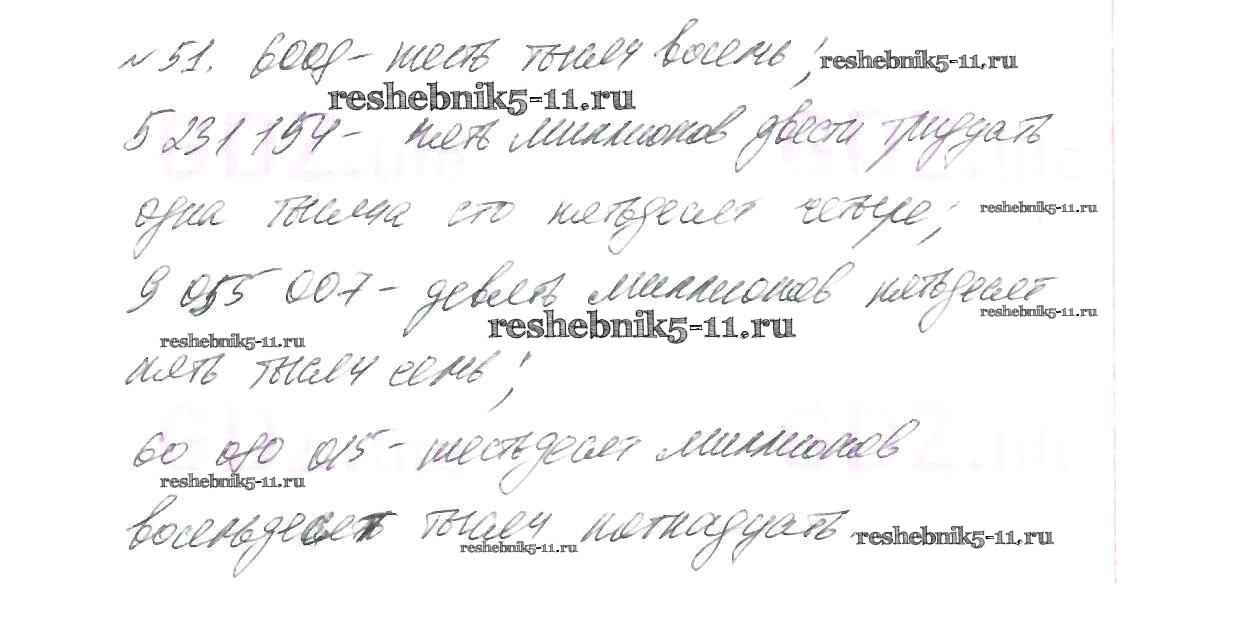 № 51. 6008 - шесть тысяч восемь; reshebnik5-11.ru
reshebnik5-11.ru
5 231 154 - пять миллионов двести тридцать
одна тысяча сто пятьдесят четыре; reshebnik5-11.ru
9 055 007 - девять миллионов пятьдесят
reshebnik5-11.ru reshebnik5-11.ru reshebnik5-11.ru
пять тысяч семь;
60 080 015 - шестьдесят миллионов
reshebnik5-11.ru
восемьдесят тысяч пятнадцать. reshebnik5-11.ru
reshebnik5-11.ru